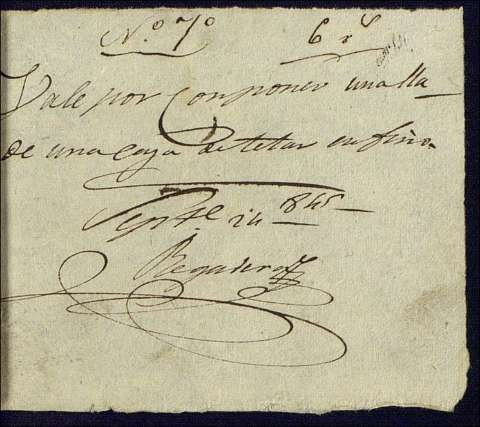 Nº 7º 6 rˢ
Vale por Componer una lla
de una caja de telar en fino
Sepᵗᵉ 24 845
Regadera